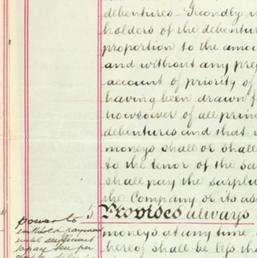 debentures. Secondly
holders of the debentur
proportion to the amou
and without any pre
account of priority of
having been drawn
howsoever of all prin
debentures and that
moneys shall or shall
to the tenor of the sa
shall pay the surplu
the Company or its as
5 Provided always
moneys at any time
hereof shall be less tha
power to
withhold payment
until sufficient
to pay ten per